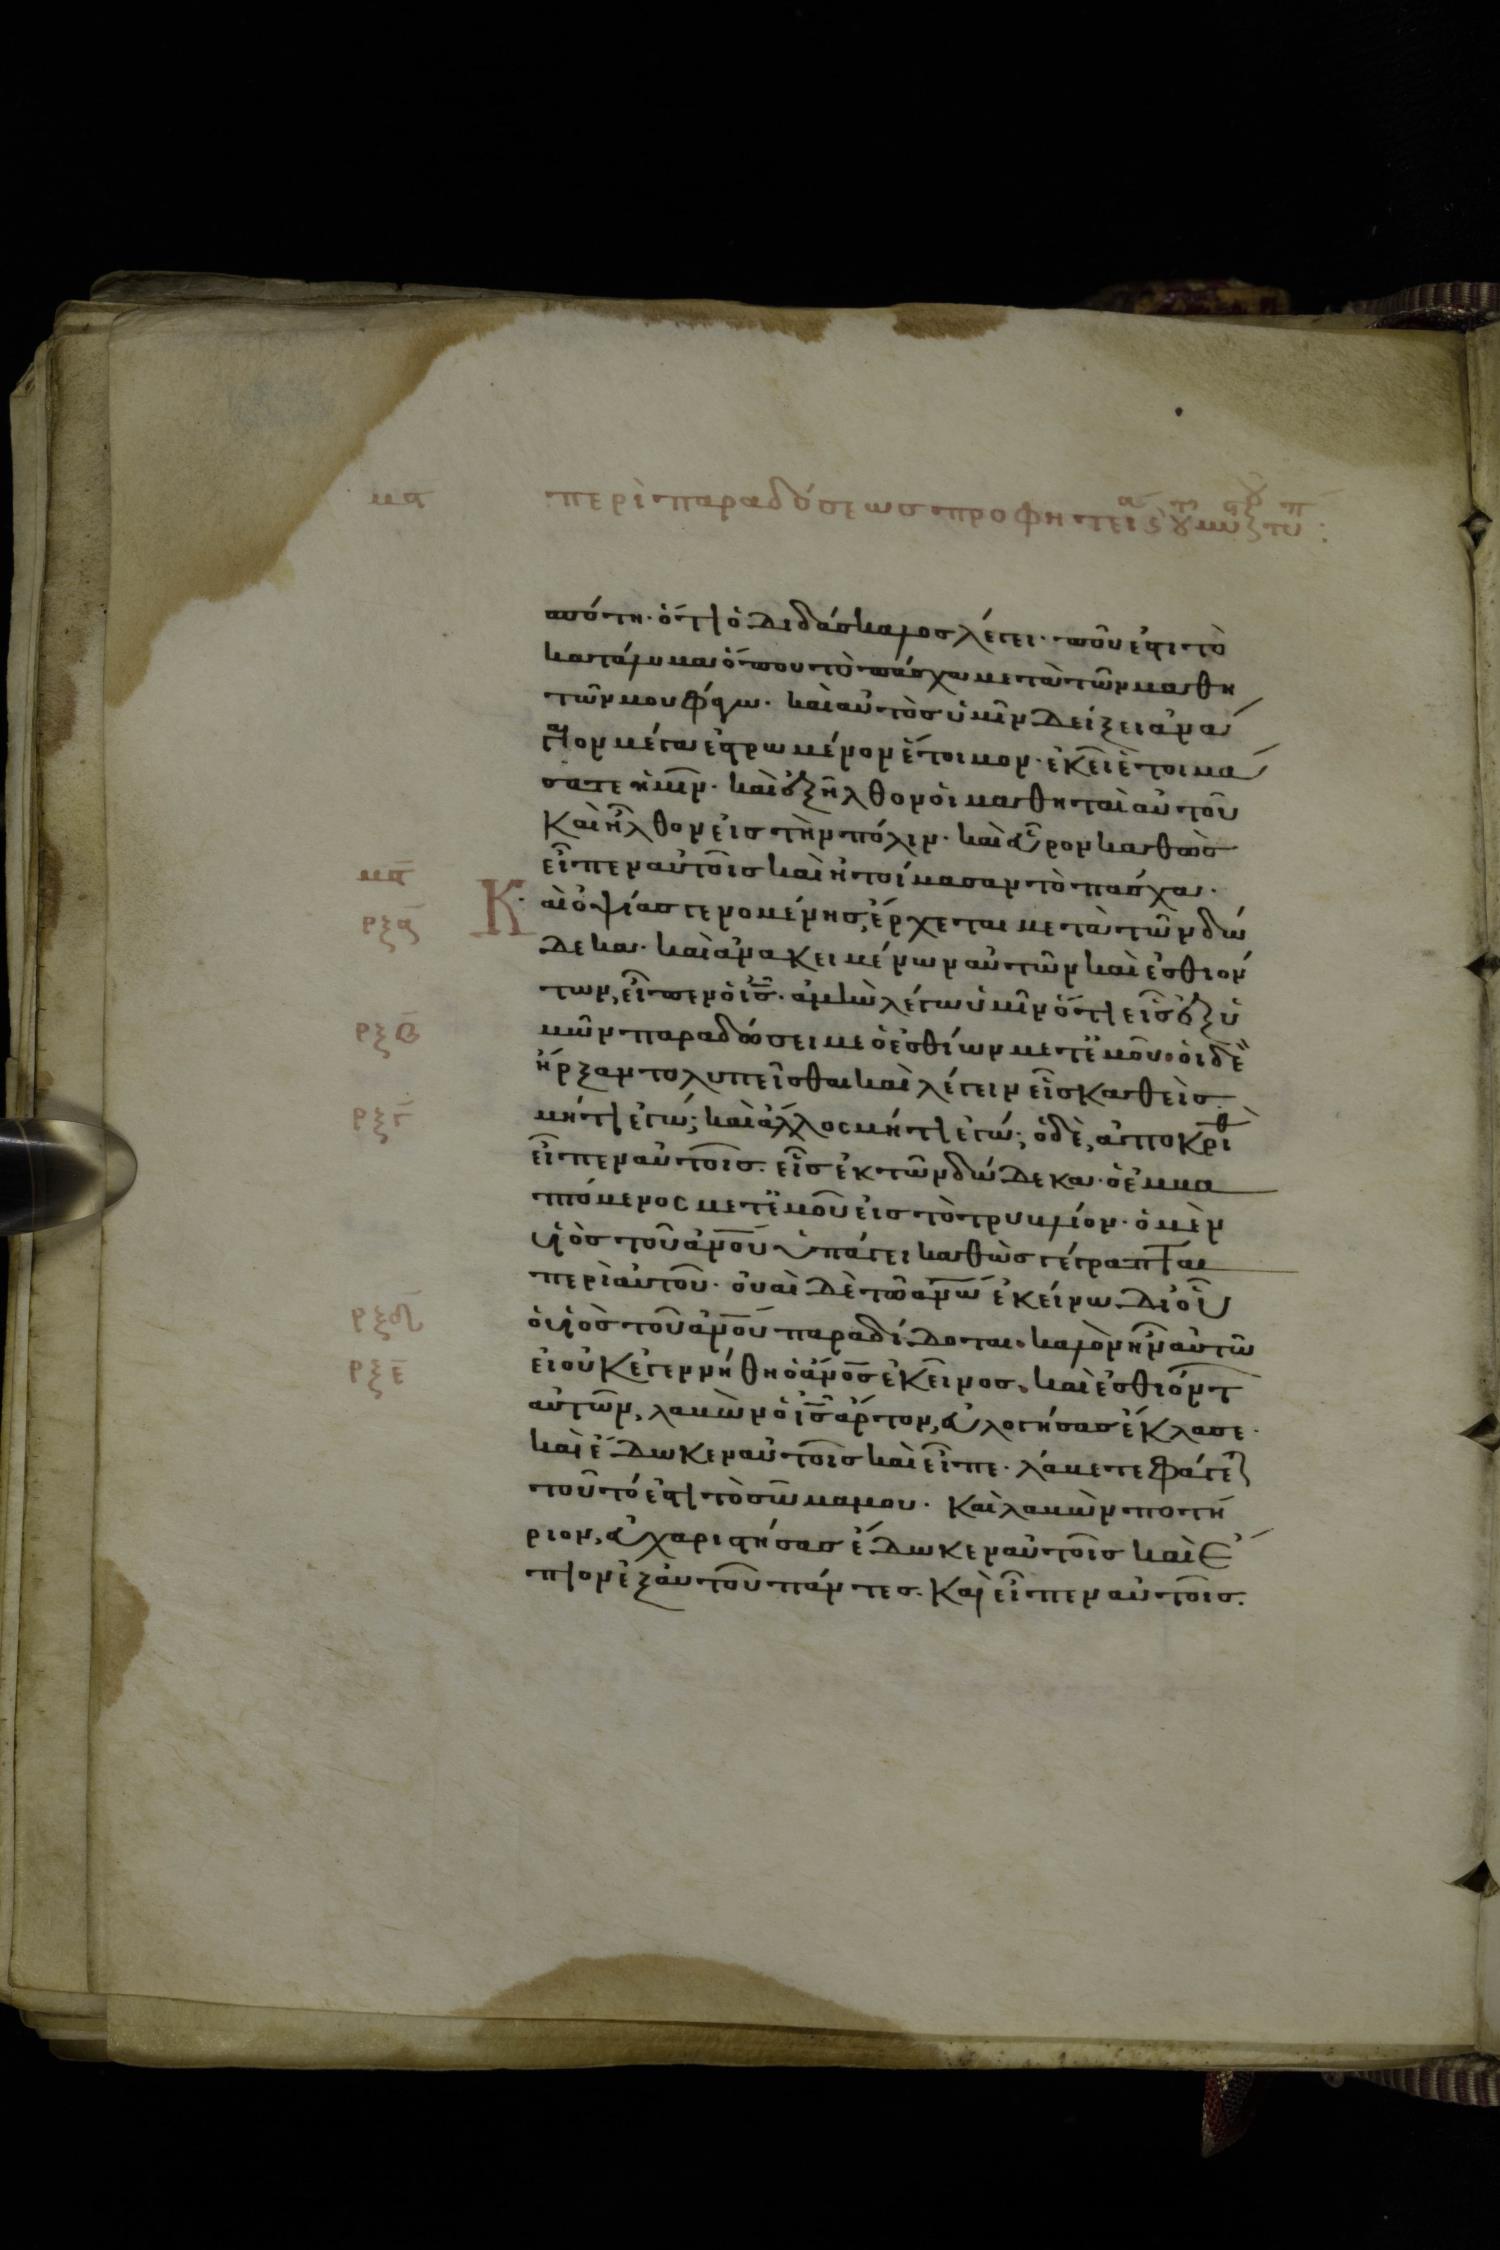 μα περὶ παραδόσεως προφητεί
πότη· ὅτι ὁ διδάσκαλος λέγει· ποῦ ἐστι τὸ
κατάλυμα ὅπου τὸ πάσχα μετὰ τῶν μαθη
τῶν μου φάγω· καὶ αὐτὸς ὑμῖν δείξει ἀνά
γαιον μέγα ἐστρωμένον ἕτοιμον· ἐκεῖ ἑτοιμά
σατε ἡμῖν· καὶ ἐξῆλθον οἱ μαθηταὶ αὐτοῦ
καὶ ἦλθον εἰς τὴν πόλιν· καὶ εὗρον καθὼς
εἶπεν αὐτοῖς καὶ ἡτοίμασαν τὸ πάσχα·
μα Καὶ ὀψίας γενομένης, ἔρχεται μετὰ τῶν δώ
ρξα δεκα· καὶ ἀνακειμένων αὐτῶν καὶ ἐσθιόν
των, εἶπεν ὁ ις· ἀμὴν λέγω ὑμῖν ὅτι εἷς ἐξ ὑ
ρξβ μῶν παραδώσει με ὁ ἐσθίων μετ ἐμοῦ· οἱ δὲ
ἤρξαντο λυπεῖσθαι καὶ λέγειν εἷς καθεὶς
ρξγ μήτι ἐγώ; καὶ ἄλλος μήτι ἐγώ; ὁ δὲ, ἀποκριθ
εἶπεν αὐτοῖς· εἷς ἐκ τῶν δώδεκα· ὁ ἐμβα
πτόμενος μετ ἐμοῦ εἰς τὸ τρυβλίον· ὁ μὲν
υἱὸς τοῦ ανου ὑπάγει καθὼς γέγραπται
περὶ αὐτοῦ· οὐαὶ δὲ τῶ ανω ἐκείνω δι οὗ
ρξδ ὁ υἱὸς τοῦ ανου παραδίδοται· καλὸν ἦν αὐτῶ
ρξε εἰ οὐκ ἐγεννήθη ὁ ανος ἐκεῖνος· καὶ ἐσθιόντ
αὐτῶν, λαβὼν ὁ ις ἄρτον, εὐλογήσας ἔκλασε·
καὶ ἔδωκεν αὐτοῖς καὶ εἶπε· λάβετε φάγε
τοῦτό ἐστι τὸ σῶμα μου· καὶ λαβὼν ποτή
ριον, εὐχαριστήσας ἔδωκεν αὐτοῖς καὶ ἔ
πιον ἐξ αὐτοῦ πάντες· καὶ εἶπεν αὐτοῖς·